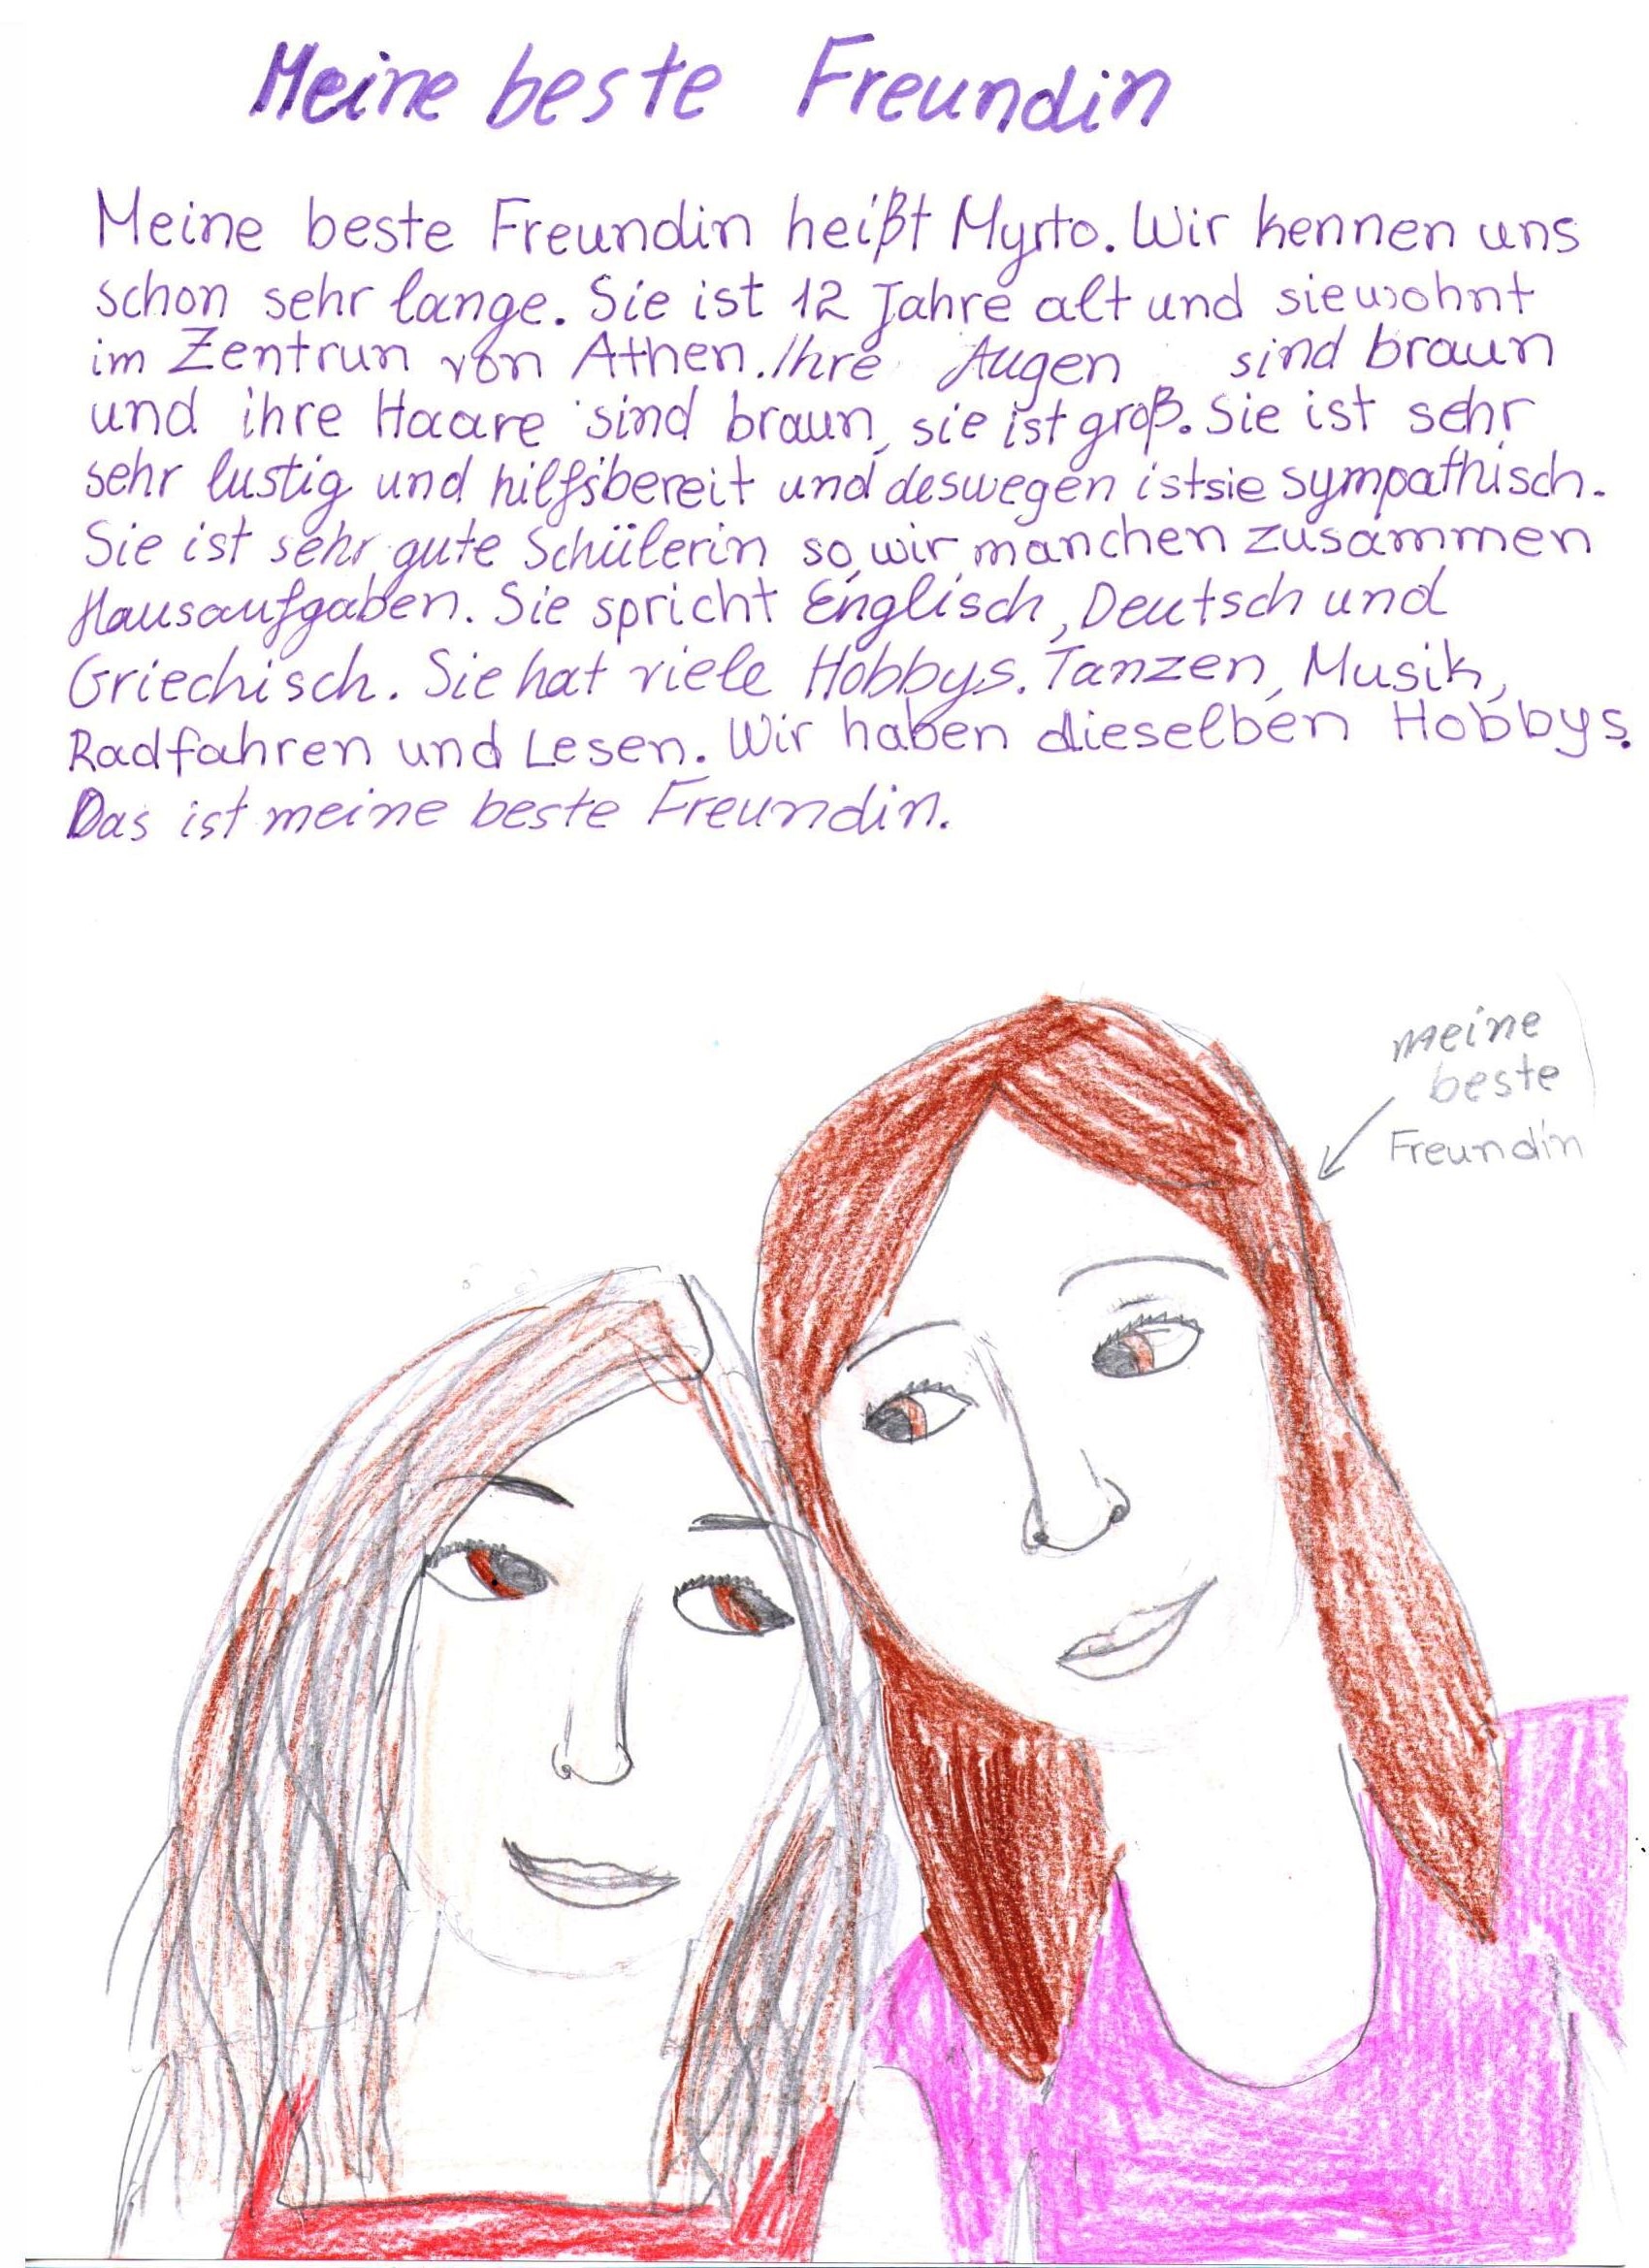 Meine beste Freundin
Meine beste Freundin heißt Myrto. Wir kennen uns
schon sehr lange. Sie ist 12 Jahre alt und sie wohnt
im Zentrun von Athen. Ihre Augen sind braun
und ihre Haare sind braun, sie ist groß. Sie ist sehr
sehr lustig und hilfsbereit und deswegen ist sie sympathisch.
Sie ist sehr gute Schülerin so, wir manchen zusammen
Hausaufgaben. Sie spricht Englisch, Deutsch und
Griechisch. Sie hat viele Hobbys. Tanzen, Musik,
Radfahren und Lesen. Wir haben dieselben Hobbys.
Das ist meine beste Freundin.
meine
beste
Freundin